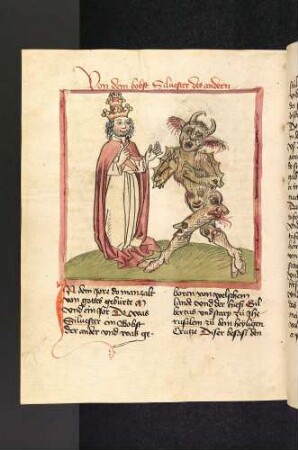 Von dem bobst Siluester des andern
In dem Jore do man zalt
von gottes geburte M
vnd ein Jor Da was
Siluester ein Bobst
der ander vnd was ge-
boren von welschem
lande vnd der hiesz Gil
bertus vnd starp zu Jhe
rusalem zu dem heyligen
Crutze Diser besasz den